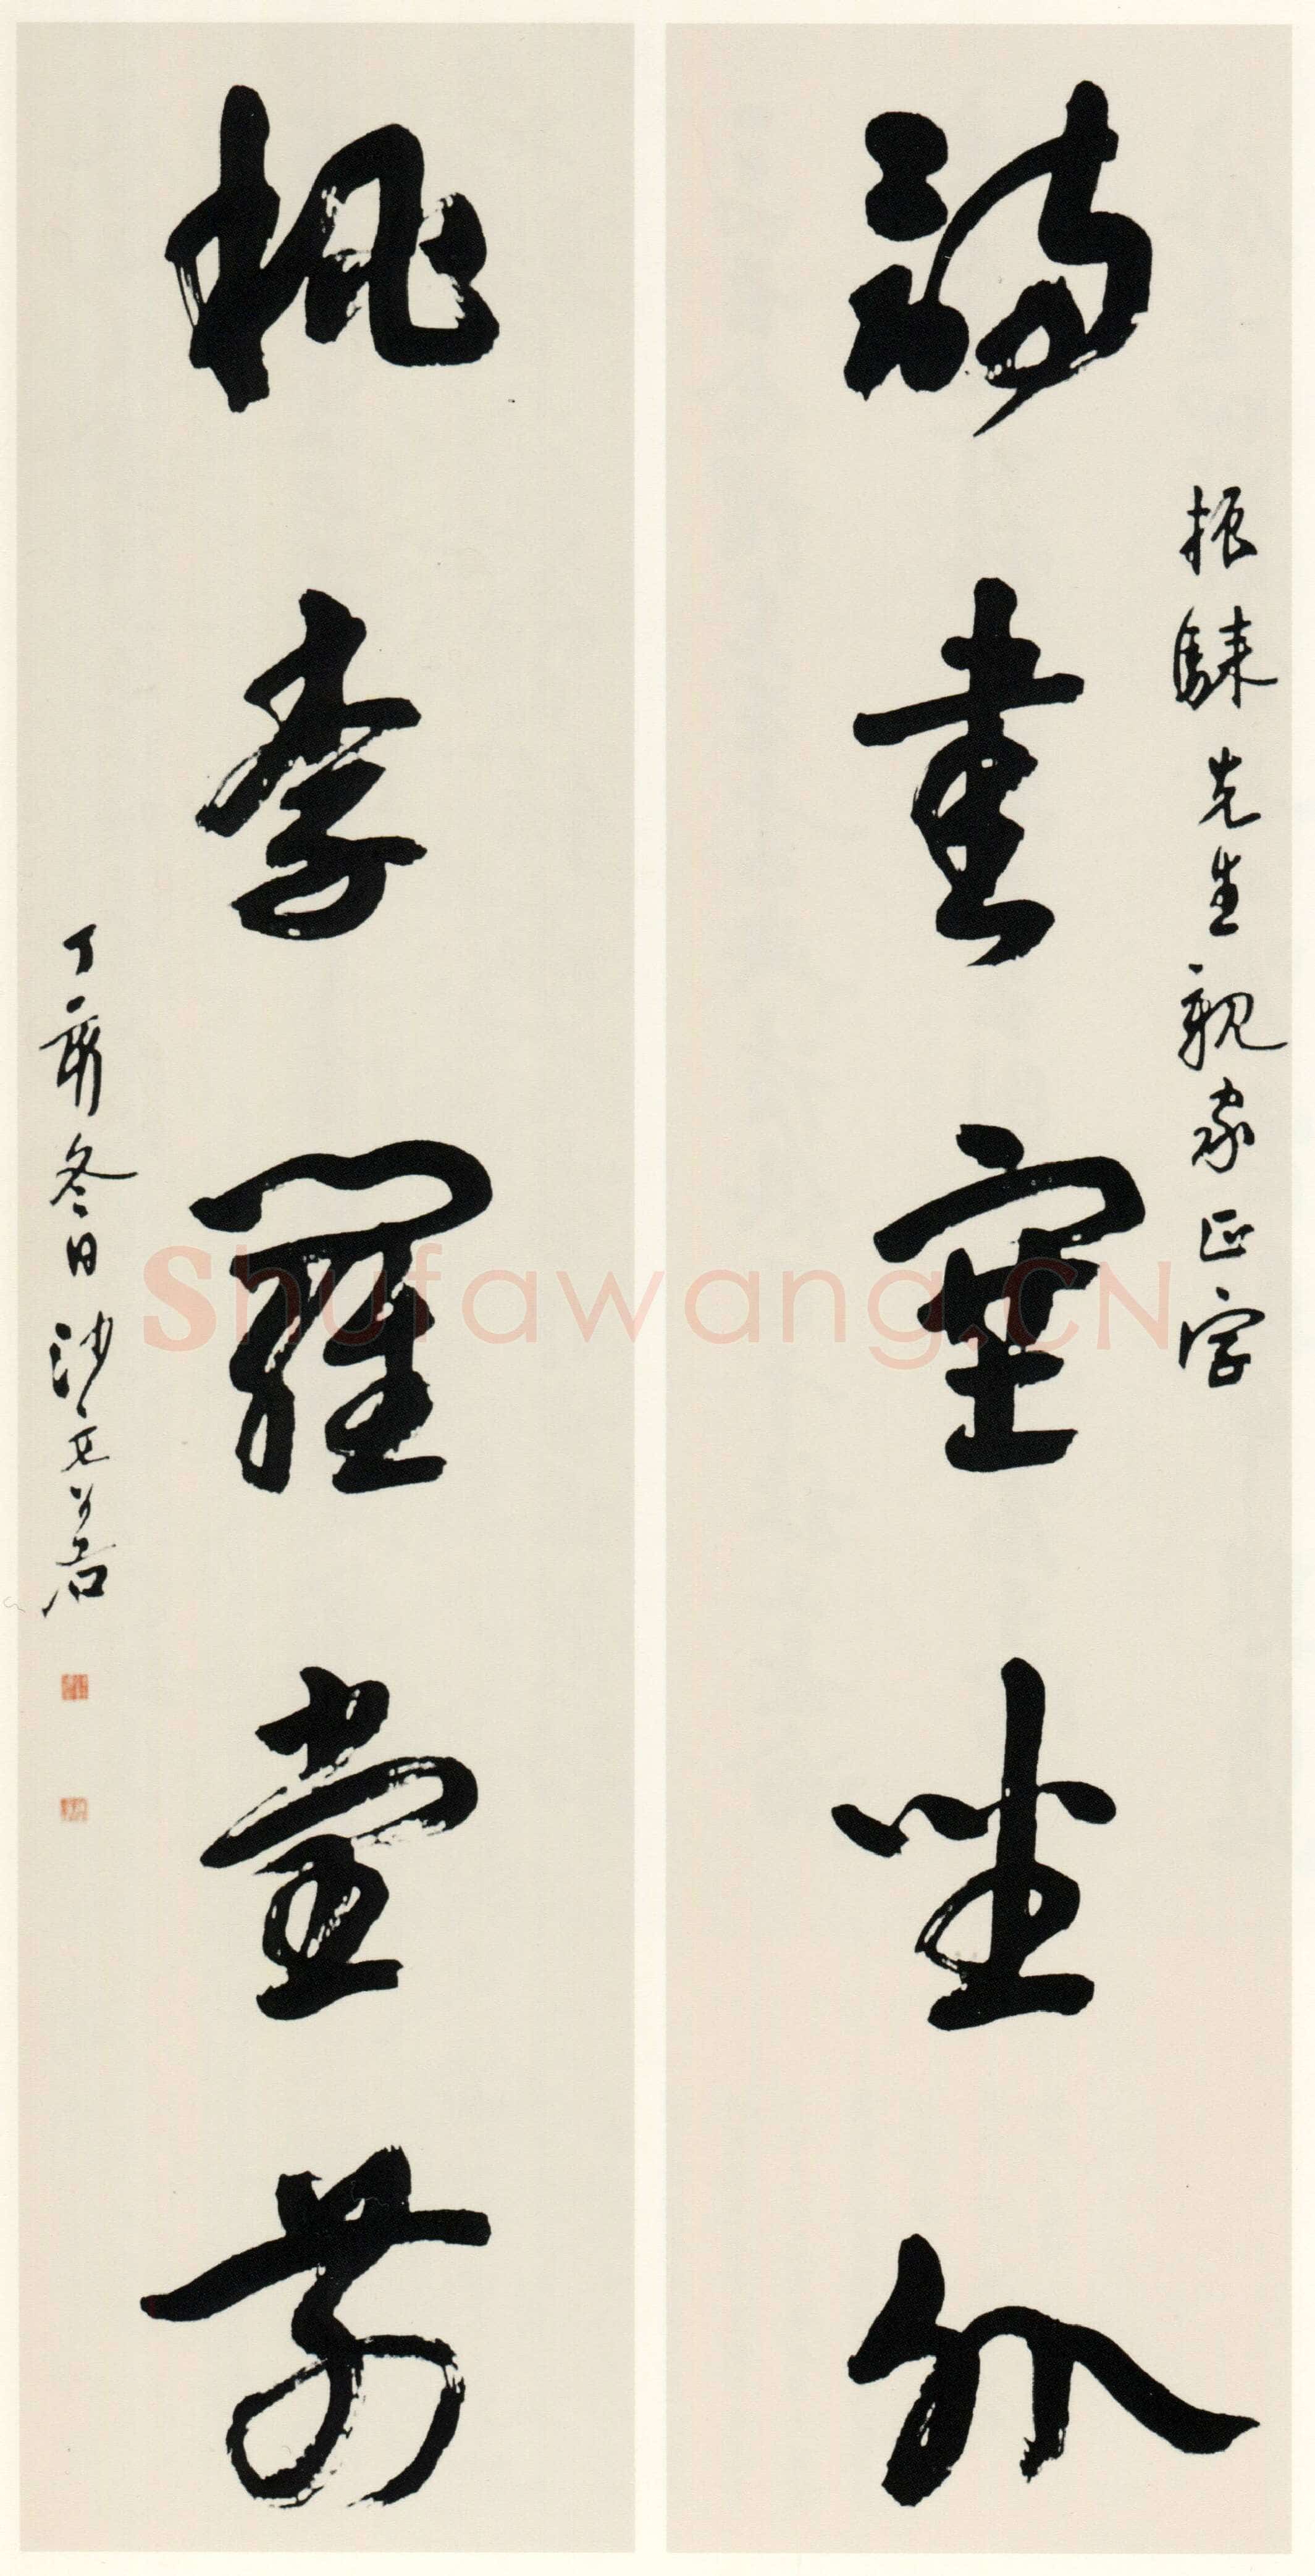 振騋先生親家正字
詩書塞坐外
桃李羅堂前
丁亥冬日沙文若
Shufawang.CN